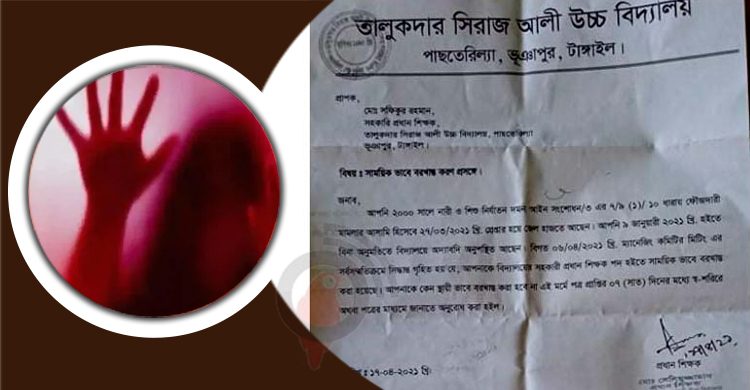 তালুকদার সিরাজ আলী উচ্চ বিদ্যালয়
পাছতেরিল্যা, ভূঞাপুর, টাঙ্গাইল।
প্রাপক,
মোঃ সফিকুর রহমান,
সহকারি প্রধান শিক্ষক,
তালুকদার সিরাজ আলী উচ্চ বিদ্যালয়, পাছতেরিল্যা
ভূঞাপুর, টাঙ্গাইল।
বিষয় : সাময়িক ভাবে বরখাস্ত করণ প্রসঙ্গে।
জনাব,
আপনি ২০০০ সালে নারী ও শিশু নির্যাতন দমন আইন সংশোধন/৩ এর ৭/৯ (১)/ ১০ ধারায় ফৌজদারী
মামলার আসামি হিসেবে ২৭/০৩/২০২১ খ্রি. গ্রেপ্তার হয়ে জেল হাজতে আছেন। আপনি ৯ জানুয়ারী ২০২১ খ্রি. হইতে
বিনা অনুমতিতে বিদ্যালয়ে অদ্যাবদি অনুপস্থিত আছেন। বিগত ০৬/০৪/২০২১ খ্রি. ম্যানেজিং কমিটির মিটিং এর
সর্বসম্মতিক্রমে সিদ্ধান্ত গৃহিত হয় যে, আপনাকে বিদ্যালয়ের সহকারী প্রধান শিক্ষক পদ হইতে সাময়িক ভাবে বরখাস্ত
করা হয়েছে। আপনাকে কেন স্থায়ী ভাবে বরখাস্ত করা হবে না এই মর্মে পত্র প্রাপ্তির ০৭ (সাত) দিনের মধ্যে স্ব-শরিরে
অথবা পত্রের মাধ্যমে জানাতে অনুরোধ করা হইল।
প্রধান শিক্ষক
১৭-০৪-২০২১ খ্রি: